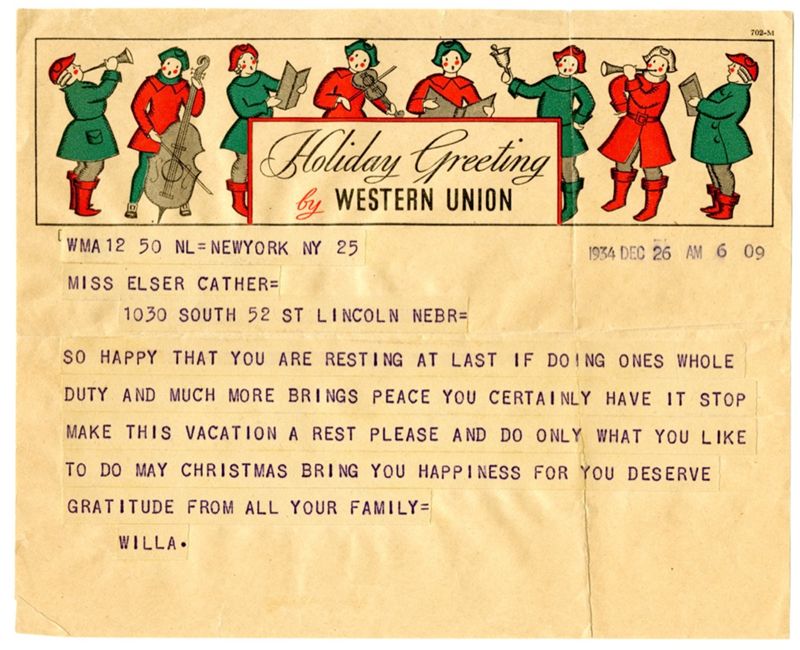 702-M
Holiday Greeting
by WESTERN UNION
WMA12 50 NL=NEWYORK NY 25
1934 DEC 26 AM 6 09
MISS ELSER CATHER=
1030 SOUTH 52 ST LINCOLN NEBR=
SO HAPPY THAT YOU ARE RESTING AT LAST IF DOING ONES WHOLE
DUTY AND MUCH MORE BRINGS PEACE YOU CERTAINLY HAVE IT STOP
MAKE THIS VACATION A REST PLEASE AND DO ONLY WHAT YOU LIKE
TO DO MAY CHRISTMAS BRING YOU HAPPINESS FOR YOU DESERVE
GRATITUDE FROM ALL YOUR FAMILY=
WILLA.